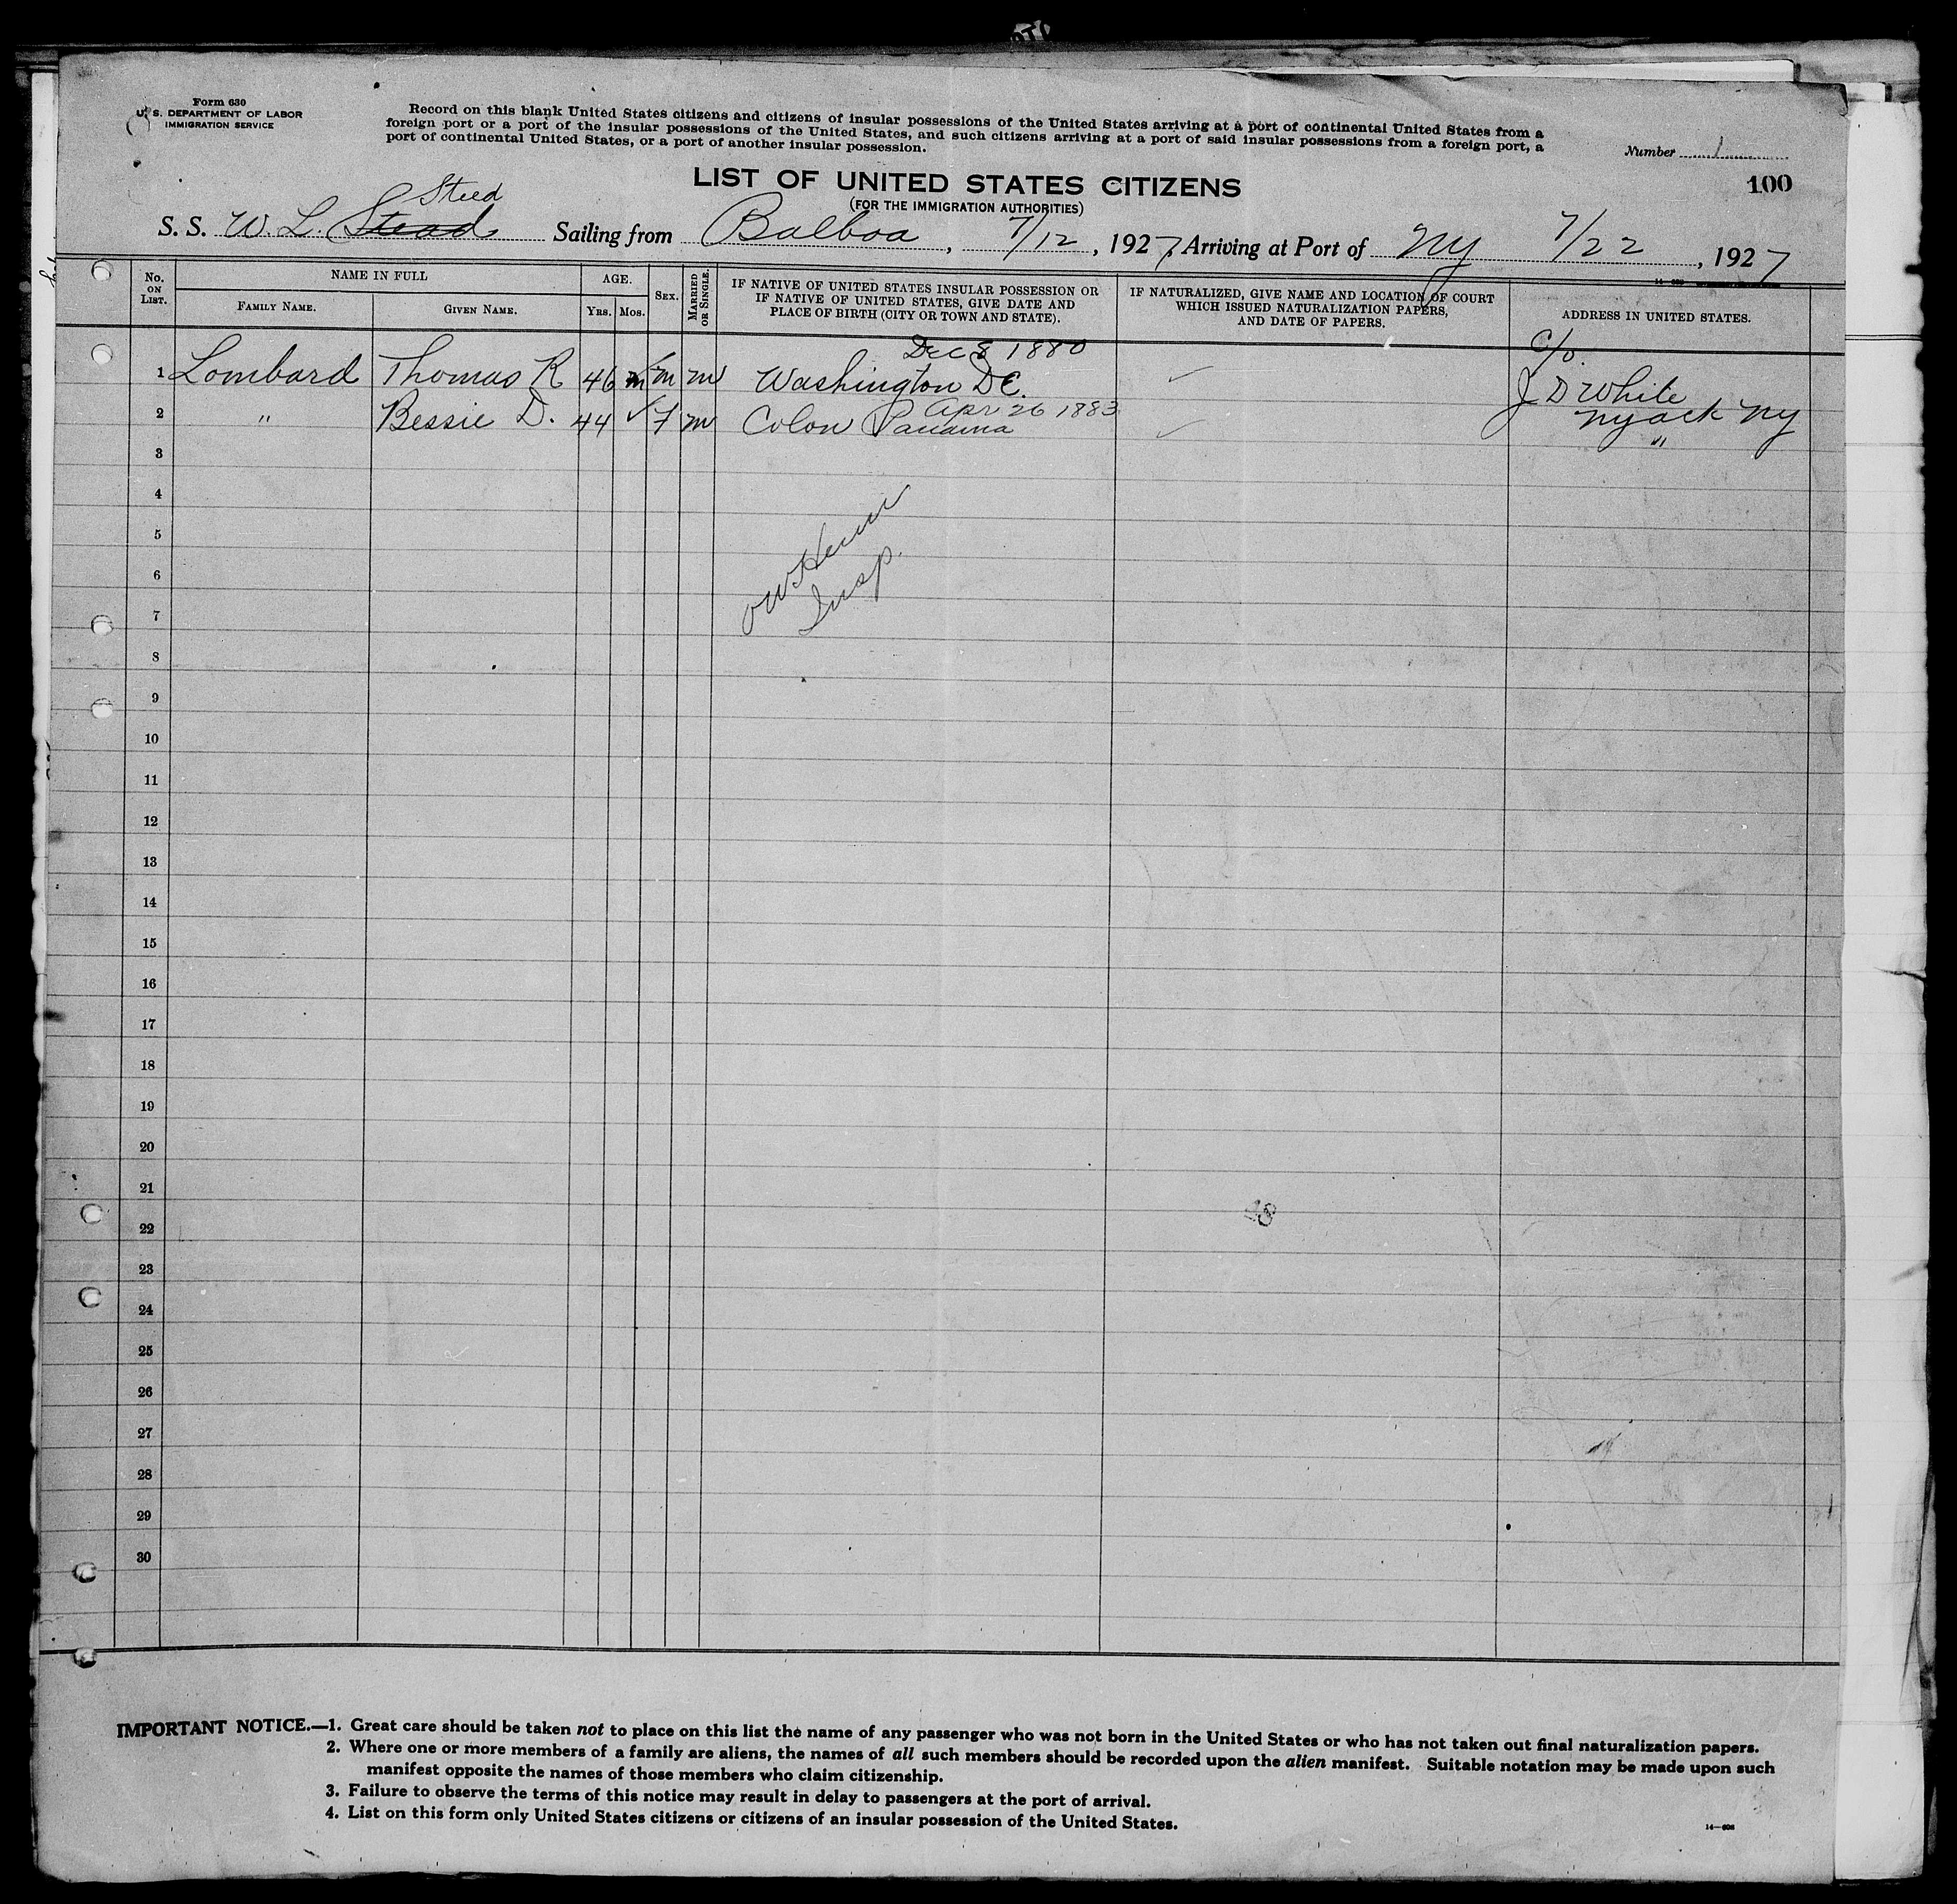 Form 630
U. S. DEPARTMENT OF LABOR
IMMIGRATION SERVICE
Record on this blank United States citizens and citizens of insular possessions of the United States arriving at a port of continental United States from a
foreign port or a port of the insular possessions of the United States, and such citizens arriving at a port of said insular possessions from a foreign port, a
port of continental United States, or a port of another insular possession.
Number 1
LIST OF UNITED STATES CITIZENS
100
(FOR THE IMMIGRATION AUTHORITIES)
Steed
S. S. W. L. Stead Sailing from Balboa, 7/12, 1927, Arriving at Port of NY 7/22, 1927
No. ON LIST.
NAME IN FULL
FAMILY NAME. GIVEN NAME.
AGE.
Yrs. Mos.
SEX.
MARRIED OR SINGLE.
IF NATIVE OF UNITED STATES INSULAR POSSESSION OR
IF NATIVE OF UNITED STATES, GIVE DATE AND
PLACE OF BIRTH (CITY OR TOWN AND STATE).
IF NATURALIZED, GIVE NAME AND LOCATION OF COURT
WHICH ISSUED NATURALIZATION PAPERS,
AND DATE OF PAPERS.
ADDRESS IN UNITED STATES.
Dec 8 1880
c/o
1 Lombard Thomas R 46 m m m Washington DC. ✓ J D White
Apr 26 1883
Nyack NY
2 " Bessie D. 44 ✓ f m Colon Panama ✓ "
3
4
5
6
7
Insp.
8
9
10
11
12
13
14
15
16
17
18
19
20
21
22
23
24
25
26
27
28
29
30
IMPORTANT NOTICE.—1. Great care should be taken not to place on this list the name of any passenger who was not born in the United States or who has not taken out final naturalization papers.
2. Where one or more members of a family are aliens, the names of all such members should be recorded upon the alien manifest. Suitable notation may be made upon such
manifest opposite the names of those members who claim citizenship.
3. Failure to observe the terms of this notice may result in delay to passengers at the port of arrival.
4. List on this form only United States citizens or citizens of an insular possession of the United States.